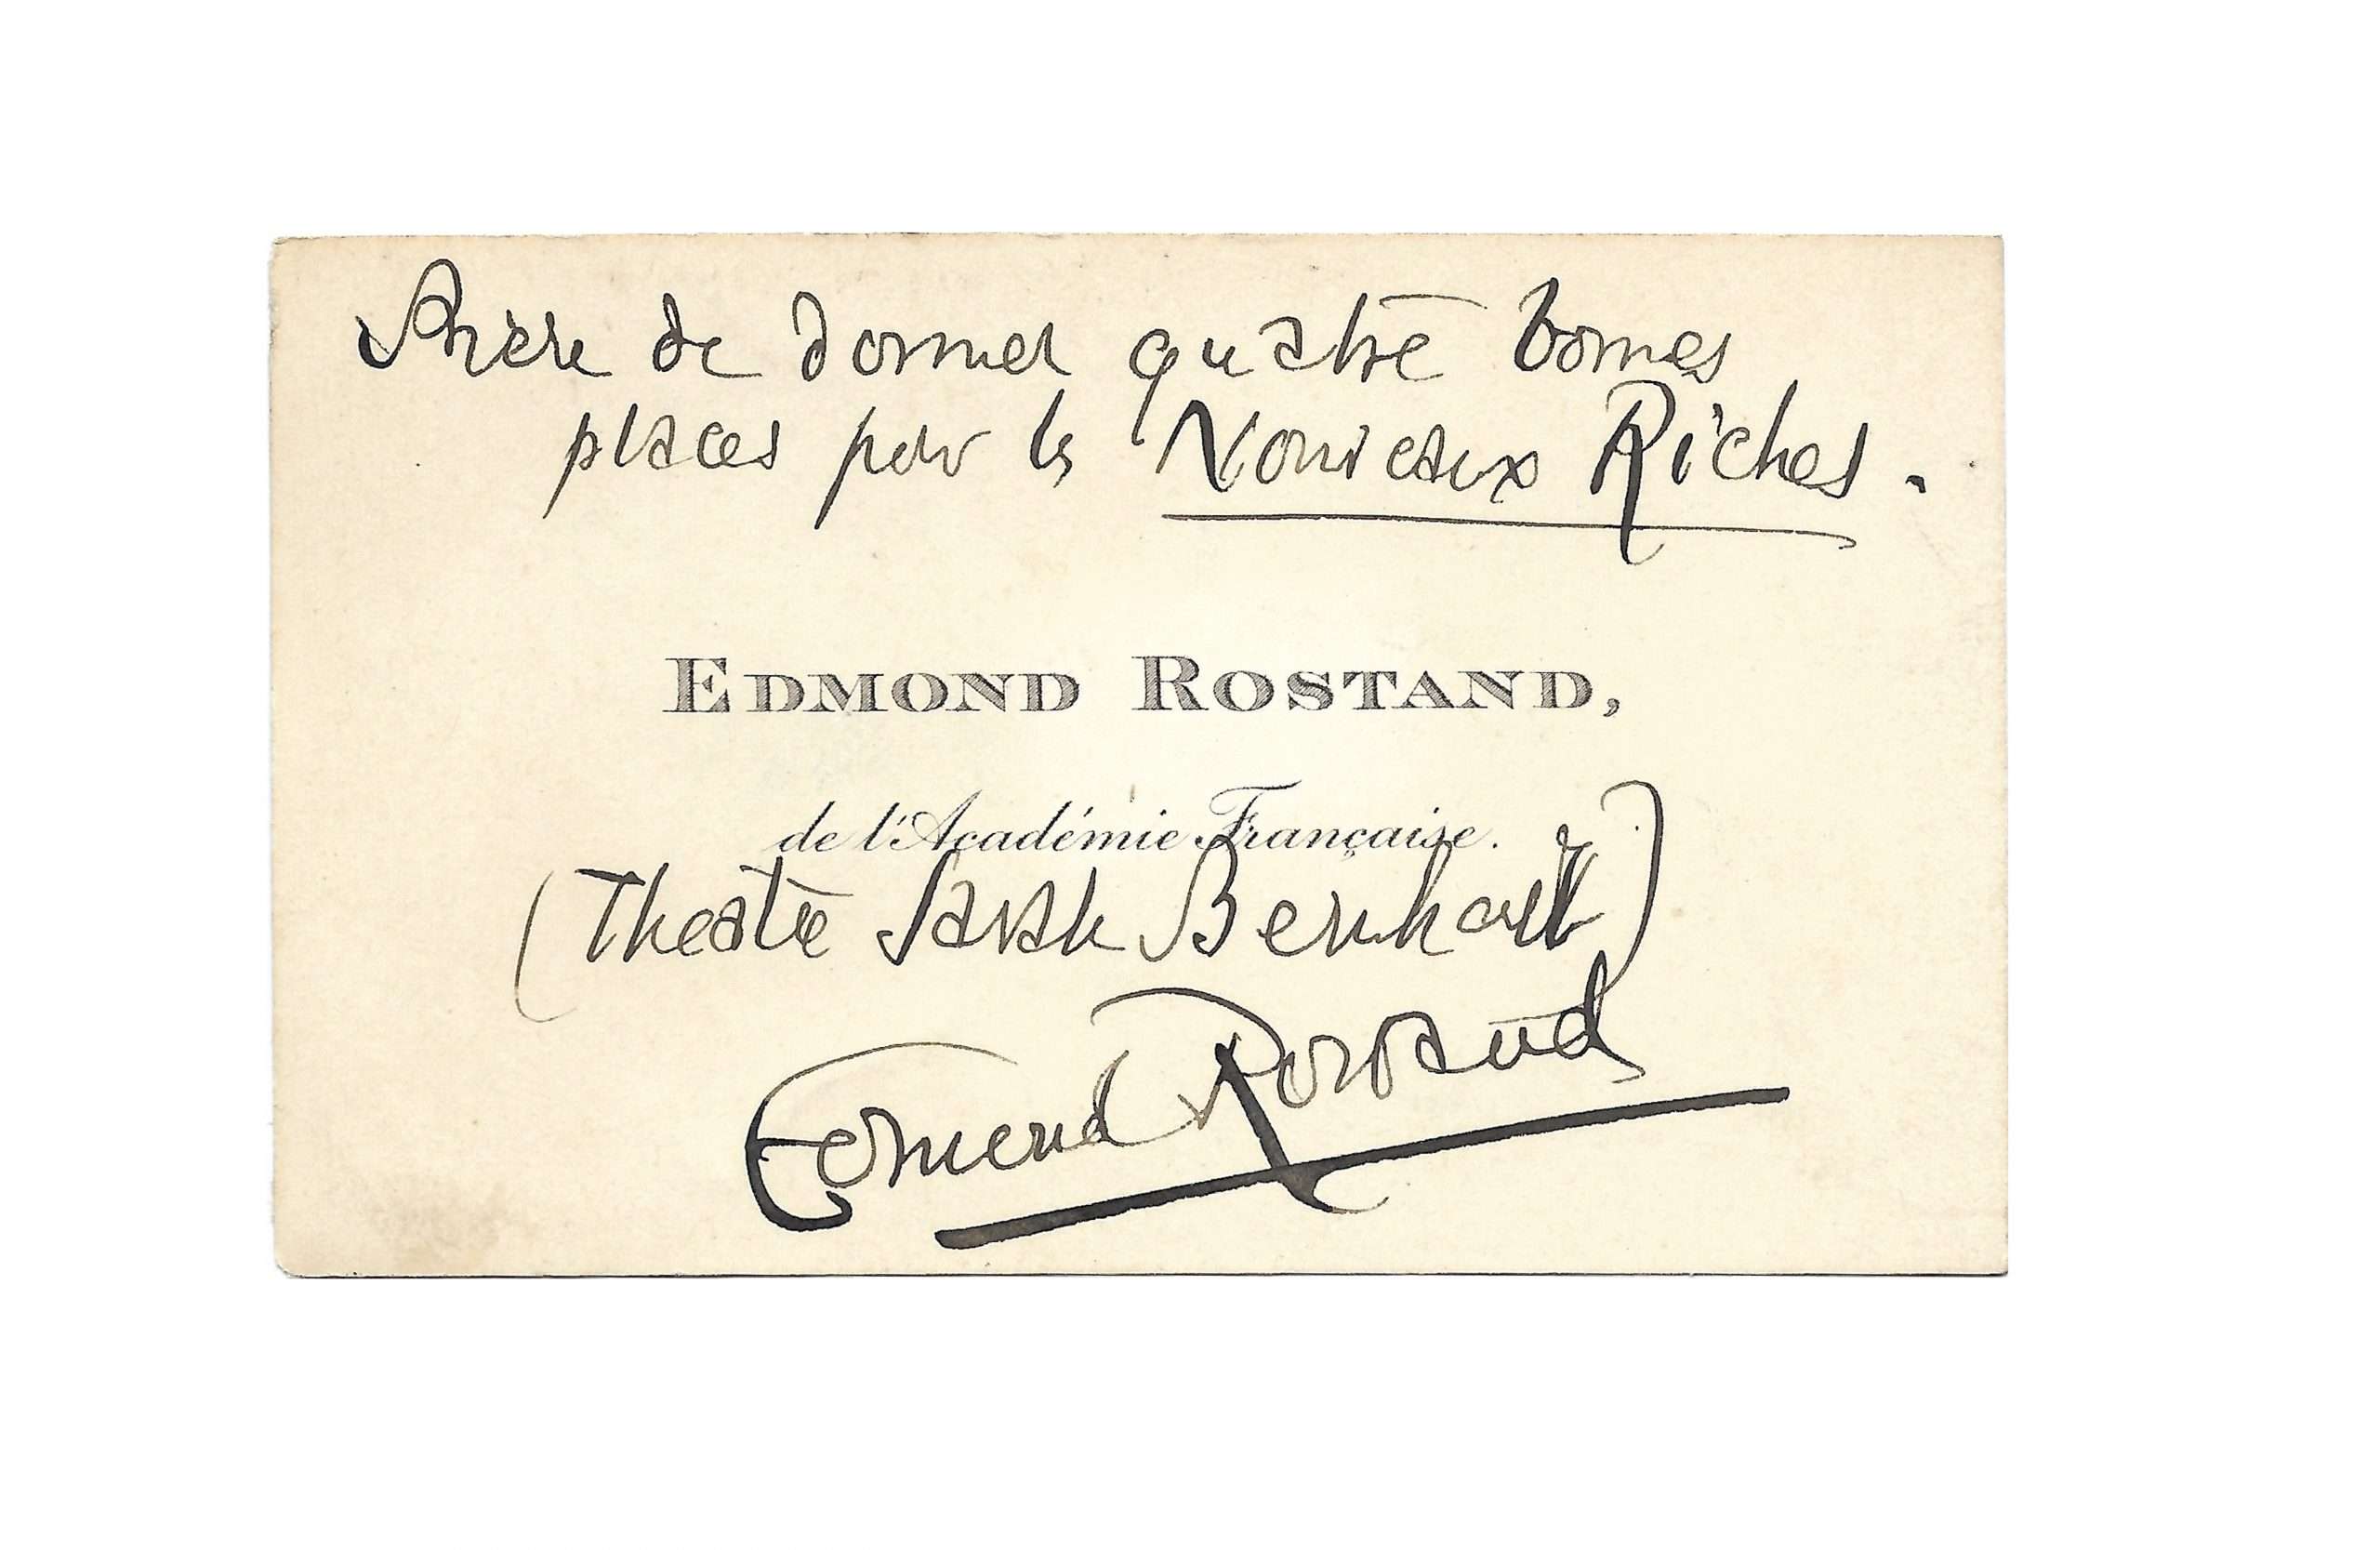 Prière de donner quatre bonnes
places pour les Nouveaux Riches.
EDMOND ROSTAND,
de l'Académie Française.
(Theatre Sarah Bernhardt)
Edmond Rostand